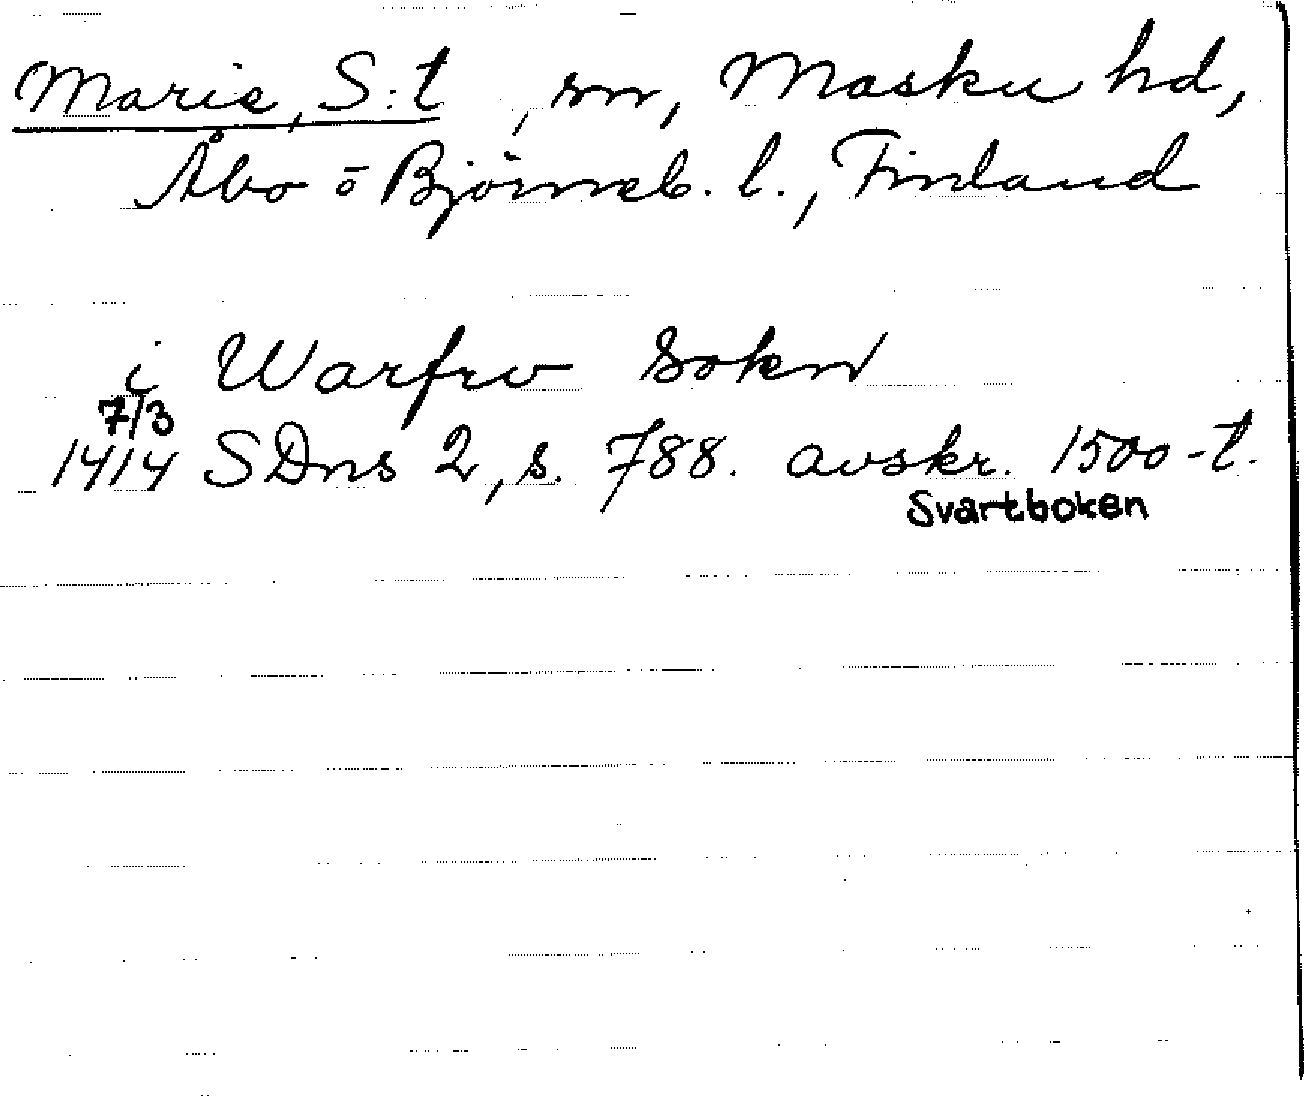 Marie, S:t , sn, Masku hd,
Åbo o Björneb. l., Finland
i Warfrv sokn
7/3
1414 SDns 2, s. 788. avskr. 1500-t.
Svartboken